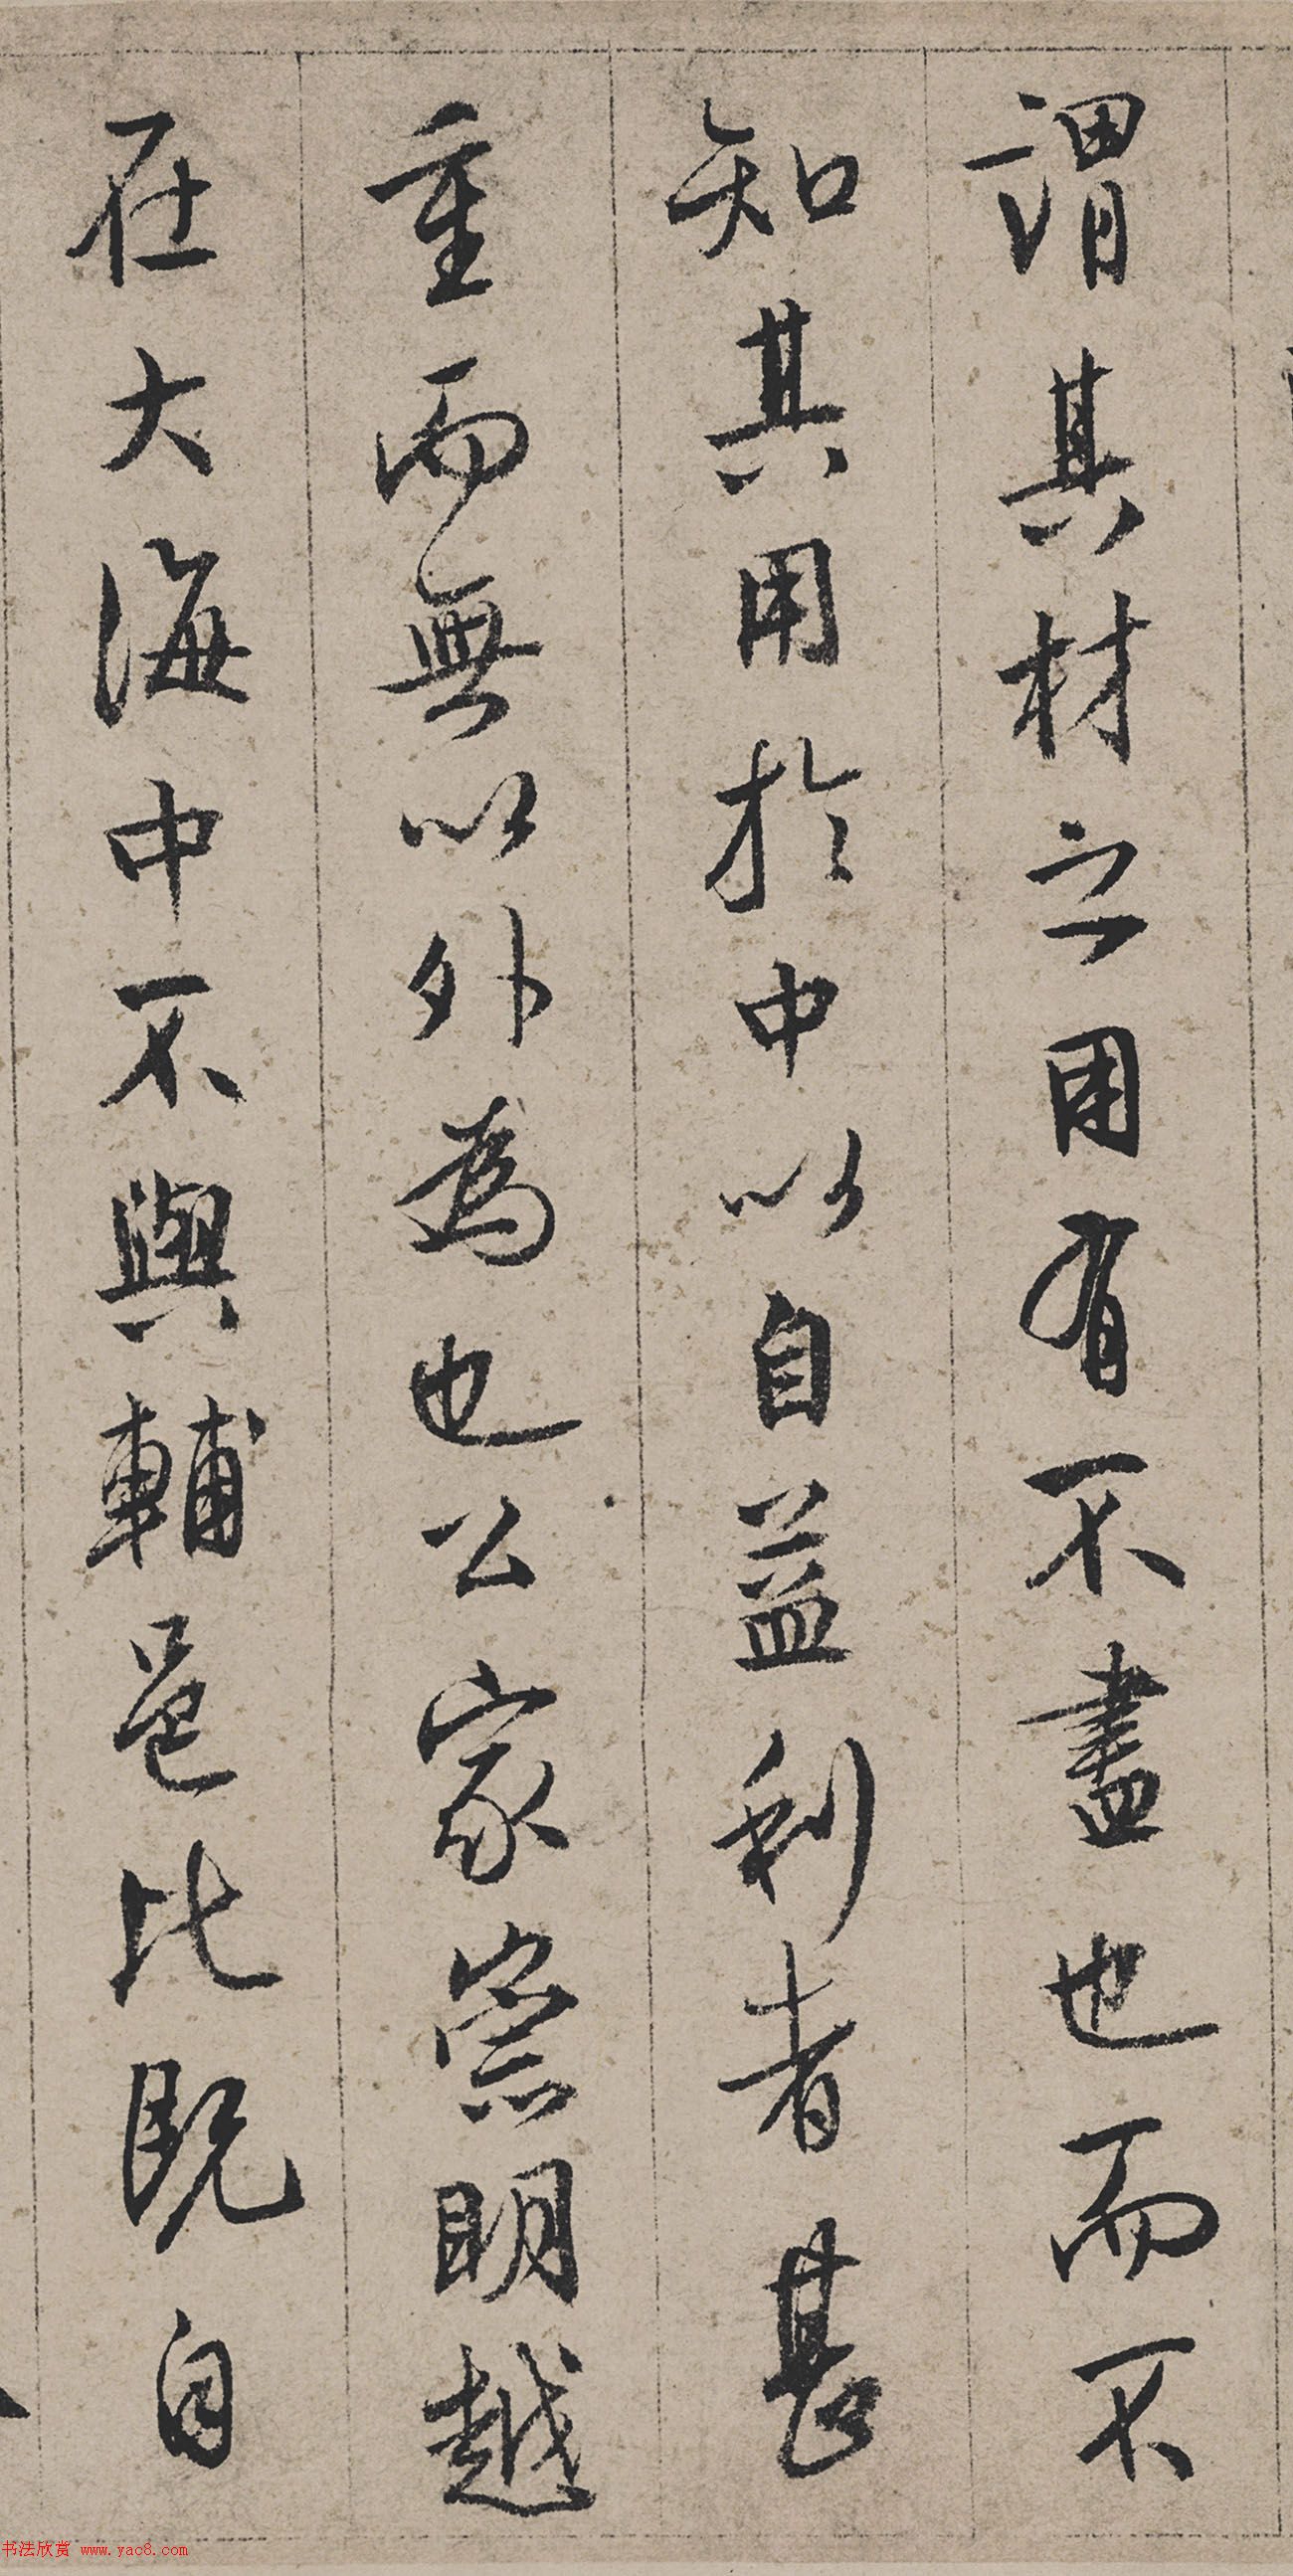 謂其材之用有不盡也而不
知其用於中以自益利者甚
重而無以外為也公家崇明越
在大海中不與輔邑比既自
书法欣赏 www.yac8.com